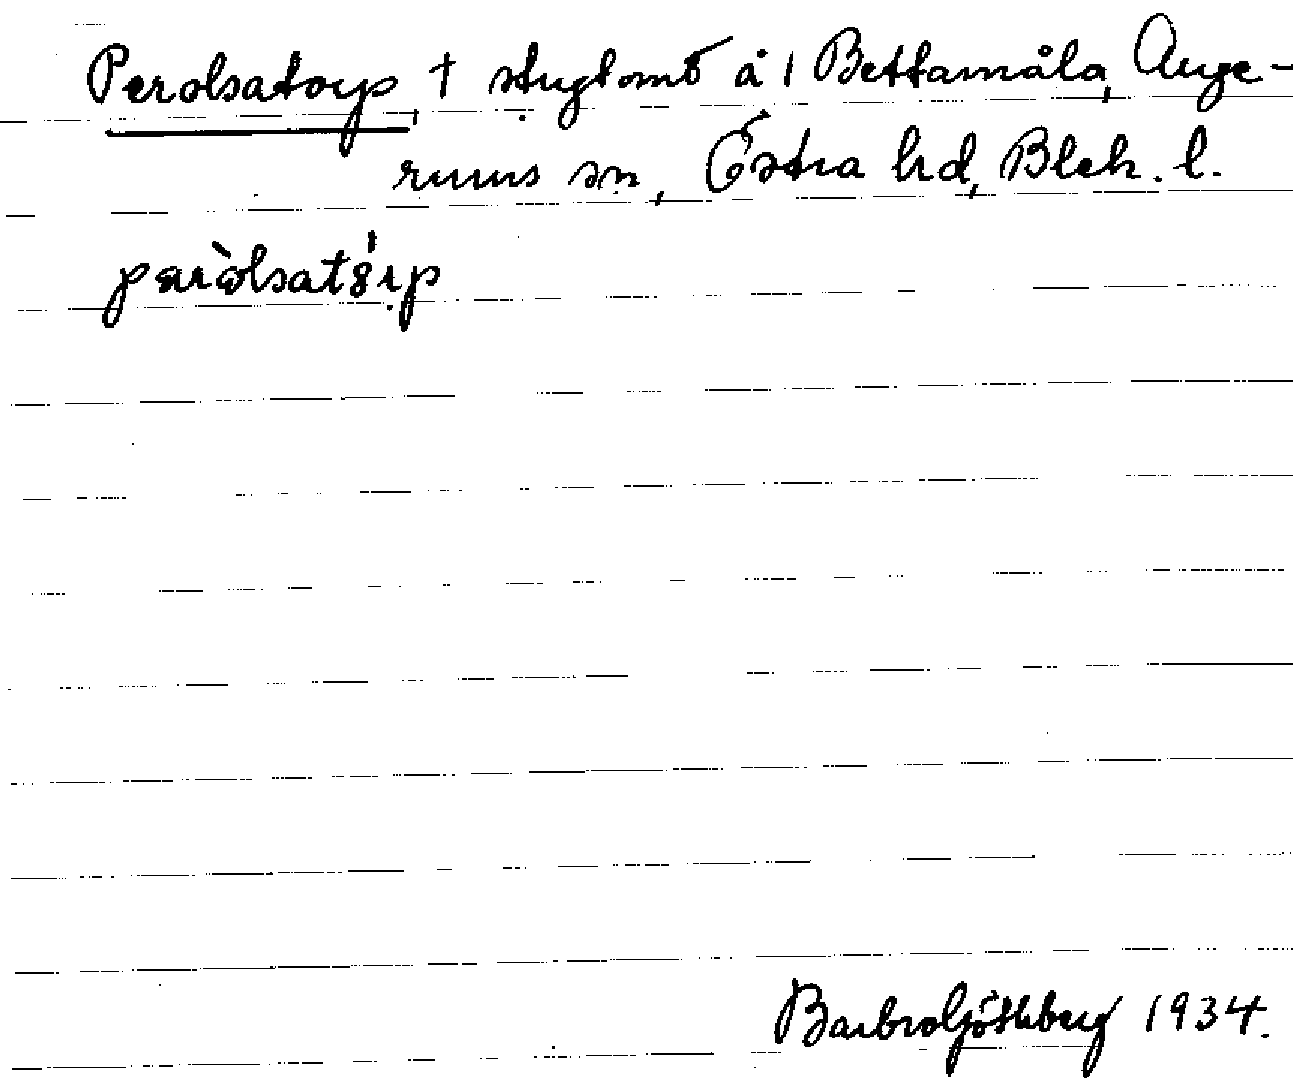 Perolsatorp, † stugtomt å 1 Bettamåla, Auge-
rums sn, Östra hd, Blek. l.
Barbro Göthberg 1934.